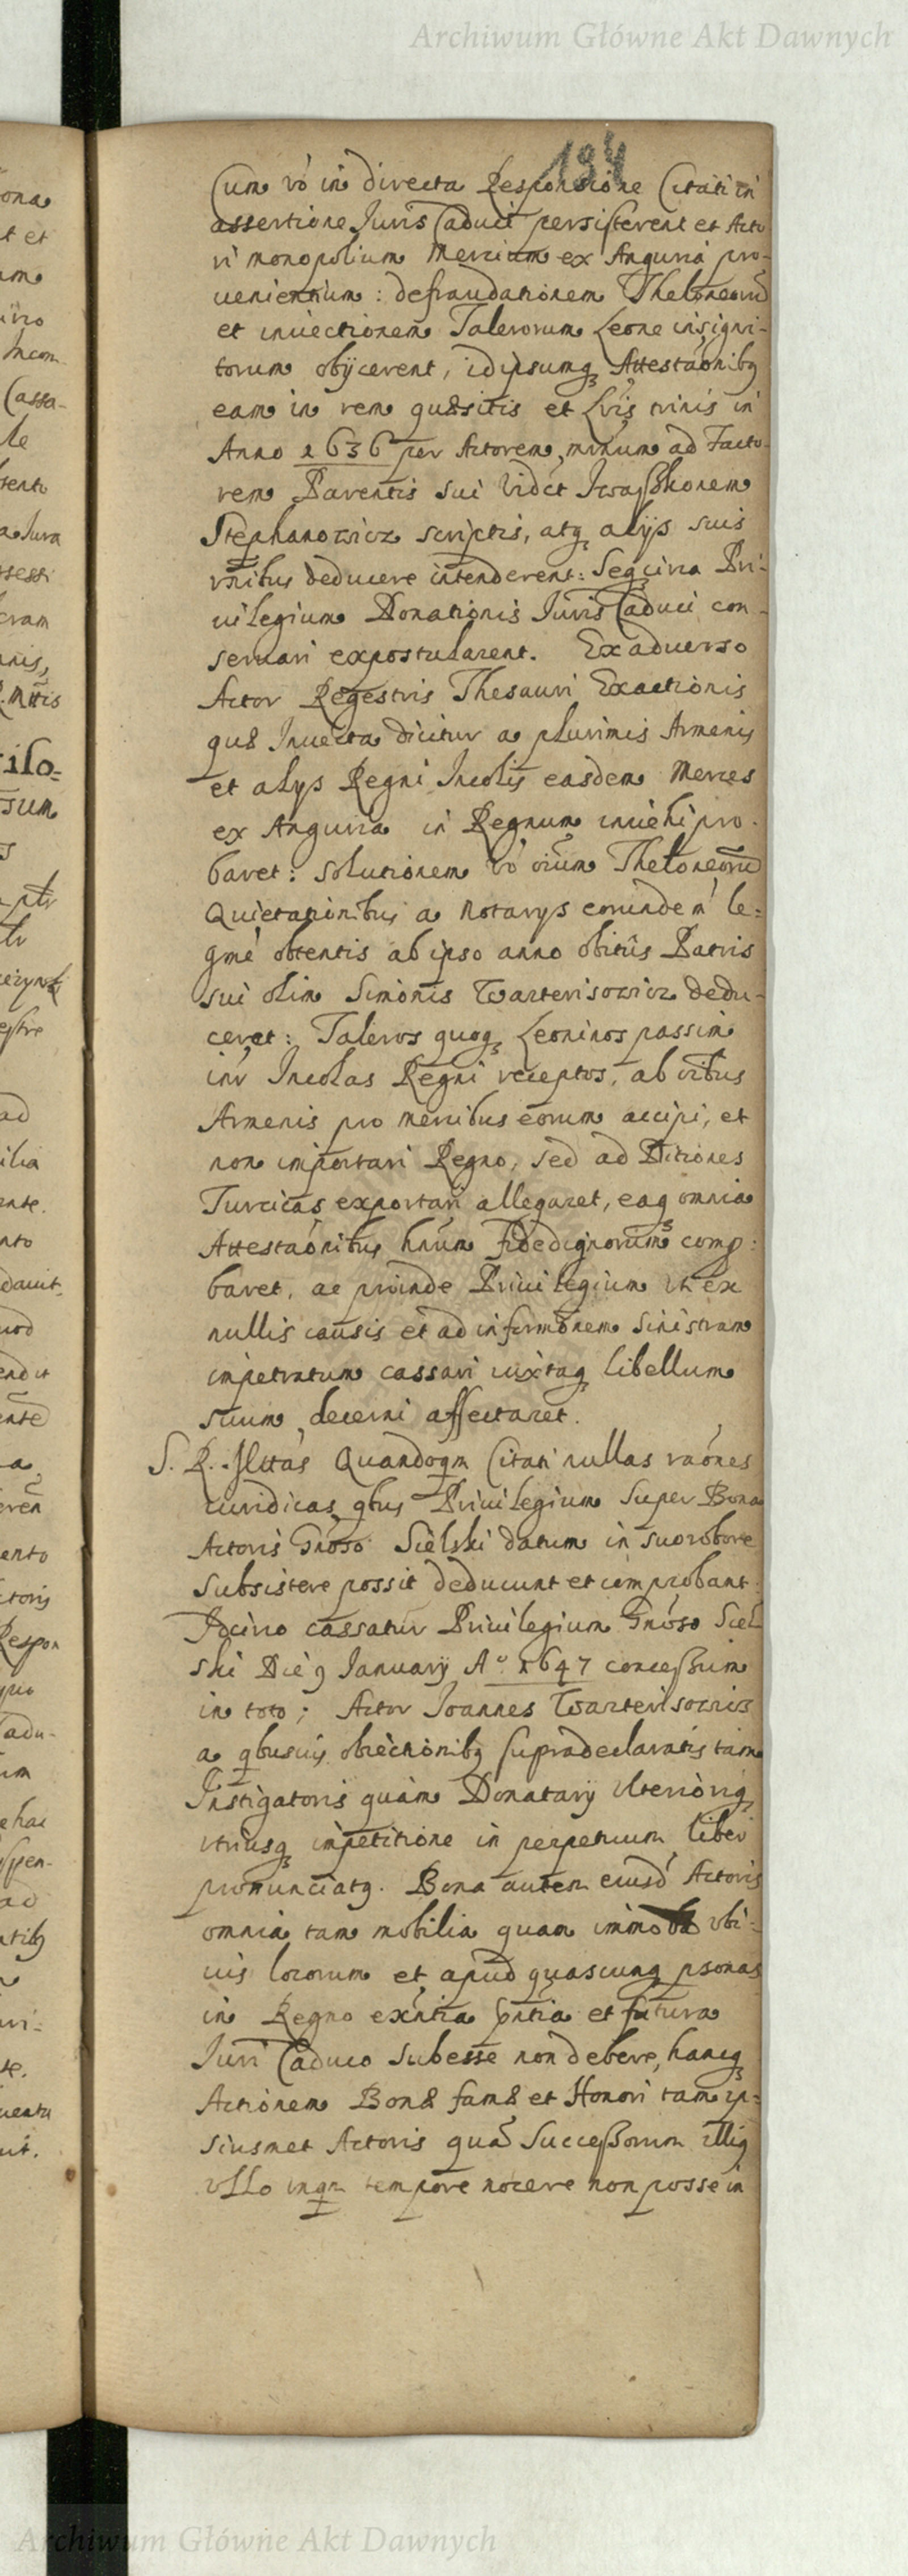 Archiwum Główne Akt Dawnych
134
Cum vo in directa Responsione Citati in
assertione Juris Caduci persisterent et Acto
ri monopolium Mercium ex Anguria pro-
uenientium : defraudationem Theloneoru
et inuectionem Talerorum Leone insigni-
torum obijcerent, idipsumq Attestaonibq
eam in rem quæsitis et Lris trinis in
Anno 1636 per Actorem, mnum ad Facto-
rem Parentis sui Vidct Iwasskonem
Stephanowicz scriptis, atq alijs suis
raonibus deducere intenderent: Seq circa Pri-
uilegium Donationis Juris Caduci con-
seruari expostularent. Ex aduerso
Actor Regestris Thesauri Exactionis
quæ Inuecta dicitur a plurimis Armenis
et alys Regni Incolis easdem Merces
ex Anguria in Regnum inuehi pro-
baret : solutionem vo oium Theloneoru
Quietationibus a Notarys eorundem le-
gme obtentis ab ipso anno obitus Patris
sui olim Simonis Warterisowicz dedu-
ceret : Taleros quoq Leoninos passim
intr Incolas Regni receptos, ab oibus
Armenis pro mercibus eorum accipi, et
non importari Regno, sed ad Ditiones
Turcicas exportari allegaret, eaq omnia
Attestaonibus hnum fidedignorum comp:
baret, ac proinde Priuilegium vt ex
nullis causis et ad informonem sinistram
impetratum cassari iuxtaq libellum
suum decerni affectaret.
S. R. Mttas Quandoqm Citati nullas raones
iuridicas qbus Priuilegium super Bona
Actoris Gnoso Sielski datum in suo robore
subsistere possit deducunt et comprobant.
Idcirco cassatur Priuilegium Gnoso Siel
ski Die 9 January Ao 1647 concessum
in toto ; Actor Joannes Warterisowicz
a qbusuis obiectionibq supradeclaratis tam
Instigatoris quam Donatary vlterioriq
vtriusq impetitione in perpetuum liber
pronunciatq. Bona autem eiusd Actoris
omnia tam mobilia quam immoba vbi-
uis locorum et apud quascunq psonas
in Regno exntia pntia et futura
Juri Caduco subesse non debere, hancq
Actionem Bonæ famæ et Honori tam ip-
siusmet Actoris qua Successorum illiq
vllo inqm tempore nocere non posse in
ona
t et
Incom
(assa-
le
sento
a Jura
ssessi
cram
R. Mttis
ilo-
sum
ad
ilia
nto
dauit.
uod
endit
a
ento
ctoris
Respon
quo
adu-
um
e hac
spen-
ad
uri-
te.
uentu
uit.
Archiwum Główne Akt Dawnych